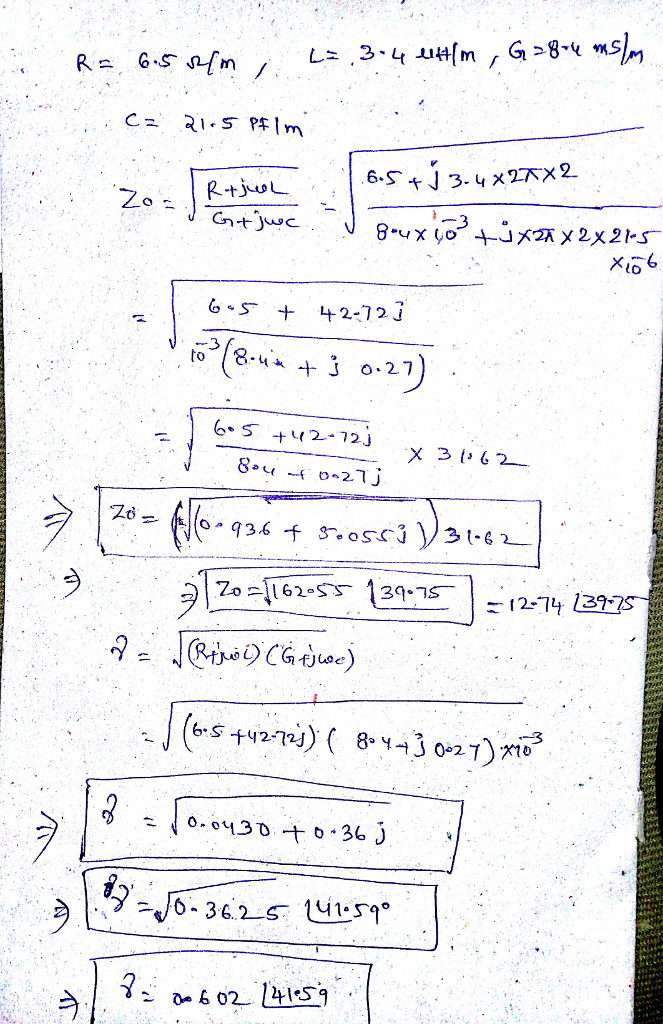 R = 6.5 Ω/m , L = 3.4 μH/m , G = 8.4 mS/m
C = 21.5 PF/m
Zo = √((R+jωL)/(G+jωc)) = √((6.5 + j 3.4 x 2π x 2)/(8.4 x 10^-3 + j x 2π x 2 x 21.5 x 10^-6))
= √((6.5 + 42.72j)/(10^-3 (8.4 + j 0.27)))
= √((6.5 + 42.72j)/(8.4 + 0.27j)) x 31.62
⇒ Zo = (√(0.936 + 5.055j)) 31.62
⇒ ⇒ Zo = √162.55 ∠39.75 = 12.74 ∠39.75
γ = √((R+jωL)(G+jωc))
= √((6.5 + 42.72j)(8.4 + j 0.27) x 10^-3)
⇒ γ = √(0.0430 + 0.36j)
⇒ γ = √0.3625 ∠41.59°
⇒ γ = 0.602 ∠41.59